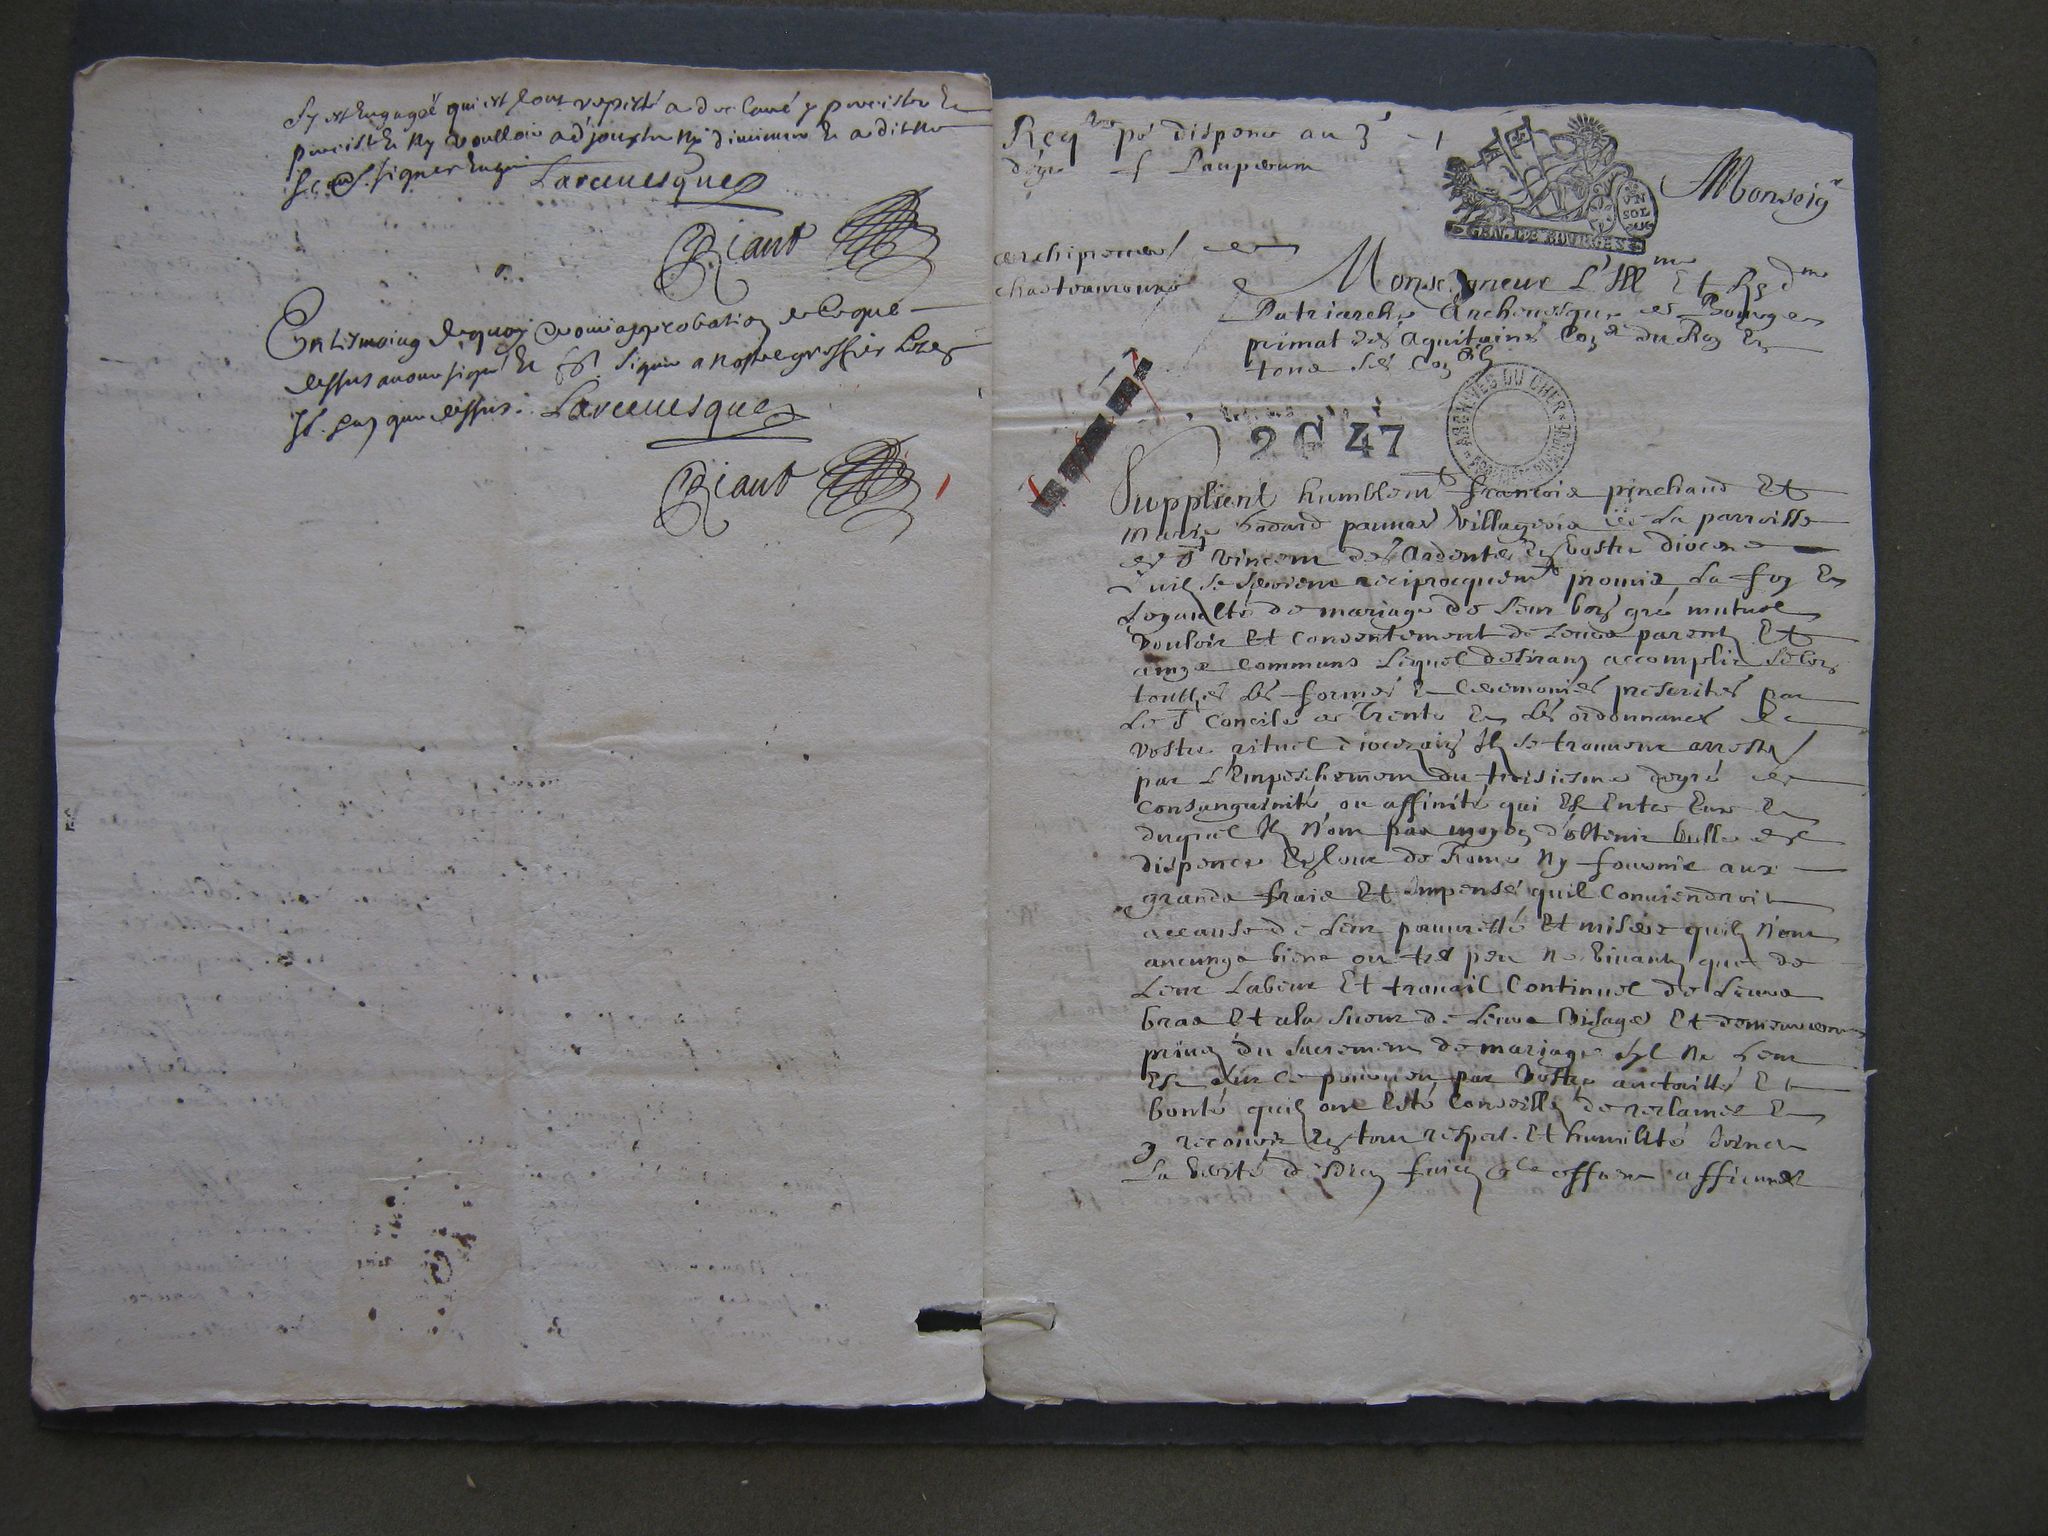 sy est engagée qui est lour repeté a declaré y persister et
persiste ny voulloir adjouxter ny diminuer et a dit ne
scavoir signer enquis Larcevesque
Riault
En tesmoing dequoy et de approbation de ce que
dessus avons signé et fst signer a nostre greffier lesd
Jr. et an que dessus. Larcevesque
Riault
Reqte pr dispence au 3e
degré f Pauperum
UN
SOL
GEN. DE BOURGES
Monseigr
archiprebré de
chasteauroux
A Monseigneur L'Illme Et Rydme
Patriarche Archevesque de Bourges
primat des Aquitaines Coner du Roy En
tous ses Conlz
ARCHIVES DU CHER
2 G 47
Supplient humblemt francois pinchaud Et
Marie Godard pauvres Villageois de La parroisse
de St Vincent des Ardentes En vostre diocese
quilz se seroient reciprocquemt promis La foy Et
Loyaulté de mariage de Leur bon gré mutuel
Vouloir Et Consentement de Leurs parentz Et
amys Communs Lequel desirant accomplir Selon
touttes Les formes Et Ceremonies prescrites par
Le St Concile de Trente Et Les ordonnances de
Vostre rituel diocezain Ilz se trouvent arrestés
par L'Empeschement du troisiesme degré de
Consanguinité ou affinité qui Est Entre Eux Et
duquel Ilz n'ont pas moyen d'obtenir bulle de
dispence En Cour de Rome Ny fournir aux
grands frais Et Impenses quil Conviendroit
accause de Leur pauvretté Et misere quilz N'ont
aucungs biens ou tres peu Ne Vivantz que de
Leur Labeur Et travail Continuel de Leurs
bras Et a la Sueur de Leurs Visages Et demeureront
privez du Sacrement de mariage Syl Ne Leur
Est sur Ce pourveu par Vostre auctoritté Et
bonté quilz ont Esté Conseillez de reclamer Et
y recourir En tout respect Et humilité
La verité de offrent affirmer